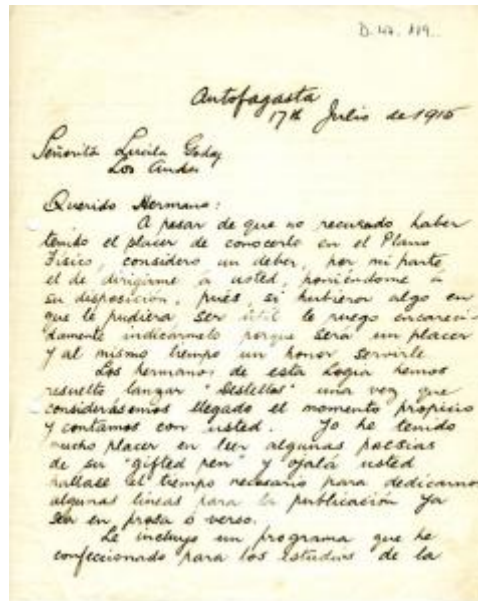 D. 44. 119.
Antofagasta
17th Julio de 1915
Señorita Lucila Godoy
Los Andes
Querido Hermano:
A pesar de que no recuerdo haber
tenido el placer de conocerle en el Plano
Físico, considero un deber, por mi parte
el de dirigirme á usted, poniéndome á
su disposición, pues, si hubiera algo en
que le pudiera ser útil le ruego encareci-
damente indicármelo porque será un placer
y al mismo tiempo un honor servirle
Los hermanos de esta Logia hemos
resuelto lanzar "Destellos" una vez que
considerásemos llegado el momento propicio
y contamos con usted. Yo he tenido
mucho placer en leer algunas poesías
de su "gifted pen" y ojalá usted
hallase el tiempo necesario para dedicarnos
algunas líneas para la publicación ya
sea en prosa ó verso.
Le incluyo un programa que he
confeccionado para los estudios de la